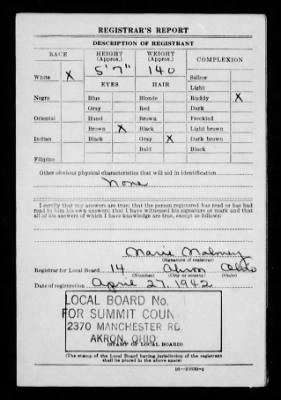 REGISTRAR'S REPORT
DESCRIPTION OF REGISTRANT
RACE HEIGHT (Approx.) WEIGHT (Approx.) COMPLEXION
5'7" 140
White X Sallow
EYES HAIR Light
Negro Blue Blonde Ruddy X
Gray Red Dark
Oriental Hazel Brown Freckled
Brown X Black Light brown
Indian Black Gray X Dark brown
Bald Black
Filipino
Other obvious physical characteristics that will aid in identification
None
I certify that my answers are true; that the person registered has read or has had
read to him his own answers; that I have witnessed his signature or mark and that
all of his answers of which I have knowledge are true, except as follows:
Marie
(Signature of registrar)
Registrar for Local Board 14 Akron Ohio
(Number) (City or county) (State)
Date of registration April 27, 1942
LOCAL BOARD No.
FOR SUMMIT COUN
2370 MANCHESTER RD.
AKRON, OHIO
(STAMP OF LOCAL BOARD)
(The stamp of the Local Board having jurisdiction of the registrant
shall be placed in the above space)